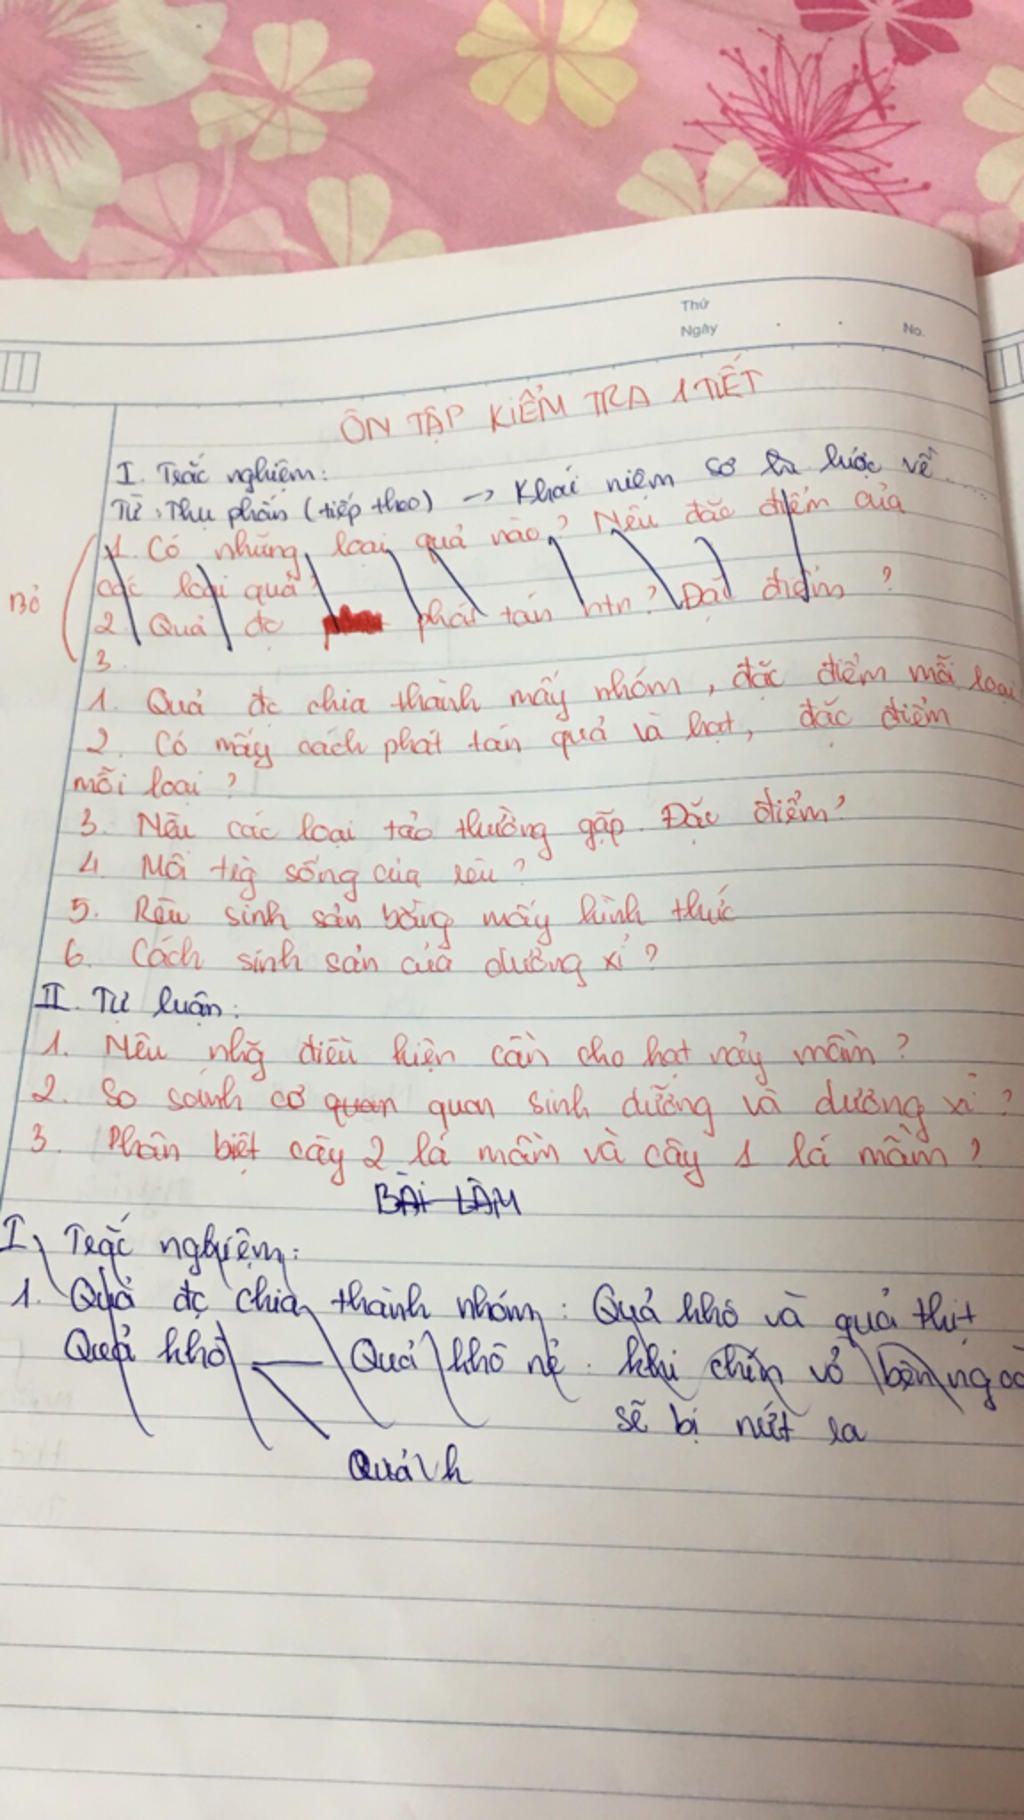 Thứ
Ngày
No.
ÔN TẬP KIỂM TRA 1 TIẾT
I. Trắc nghiệm:
Từ: Thụ phấn (tiếp theo) → Khái niệm sơ lược về....
1. Có những loại quả nào? Nêu đặc điểm của
Bỏ
các loại quả?
2 Quả đc phát tán ntn? Đặc điểm ?
3
1. Quả đc chia thành mấy nhóm, đặc điểm mỗi loại
2. Có mấy cách phát tán quả và hạt, đặc điểm
mỗi loại?
3. Nêu các loại tảo thường gặp. Đặc điểm?
4 Môi trg sống của rêu?
5. Rêu sinh sản bằng mấy hình thức
6. Cách sinh sản của dương xỉ?
II. Tự luận:
1. Nêu nhg điều kiện cần cho hạt nảy mầm?
2. So sánh cơ quan quan sinh dưỡng và dương xỉ?
3. Phân biệt cây 2 lá mầm và cây 1 lá mầm?
BÀI LÀM
I, Trắc nghiệm:
1. Quả đc chia thành nhóm: Quả khô và quả thịt
Quả khô — Quả khô nẻ: khi chín vỏ bên ngoà
sẽ bị nứt ra
Quả h